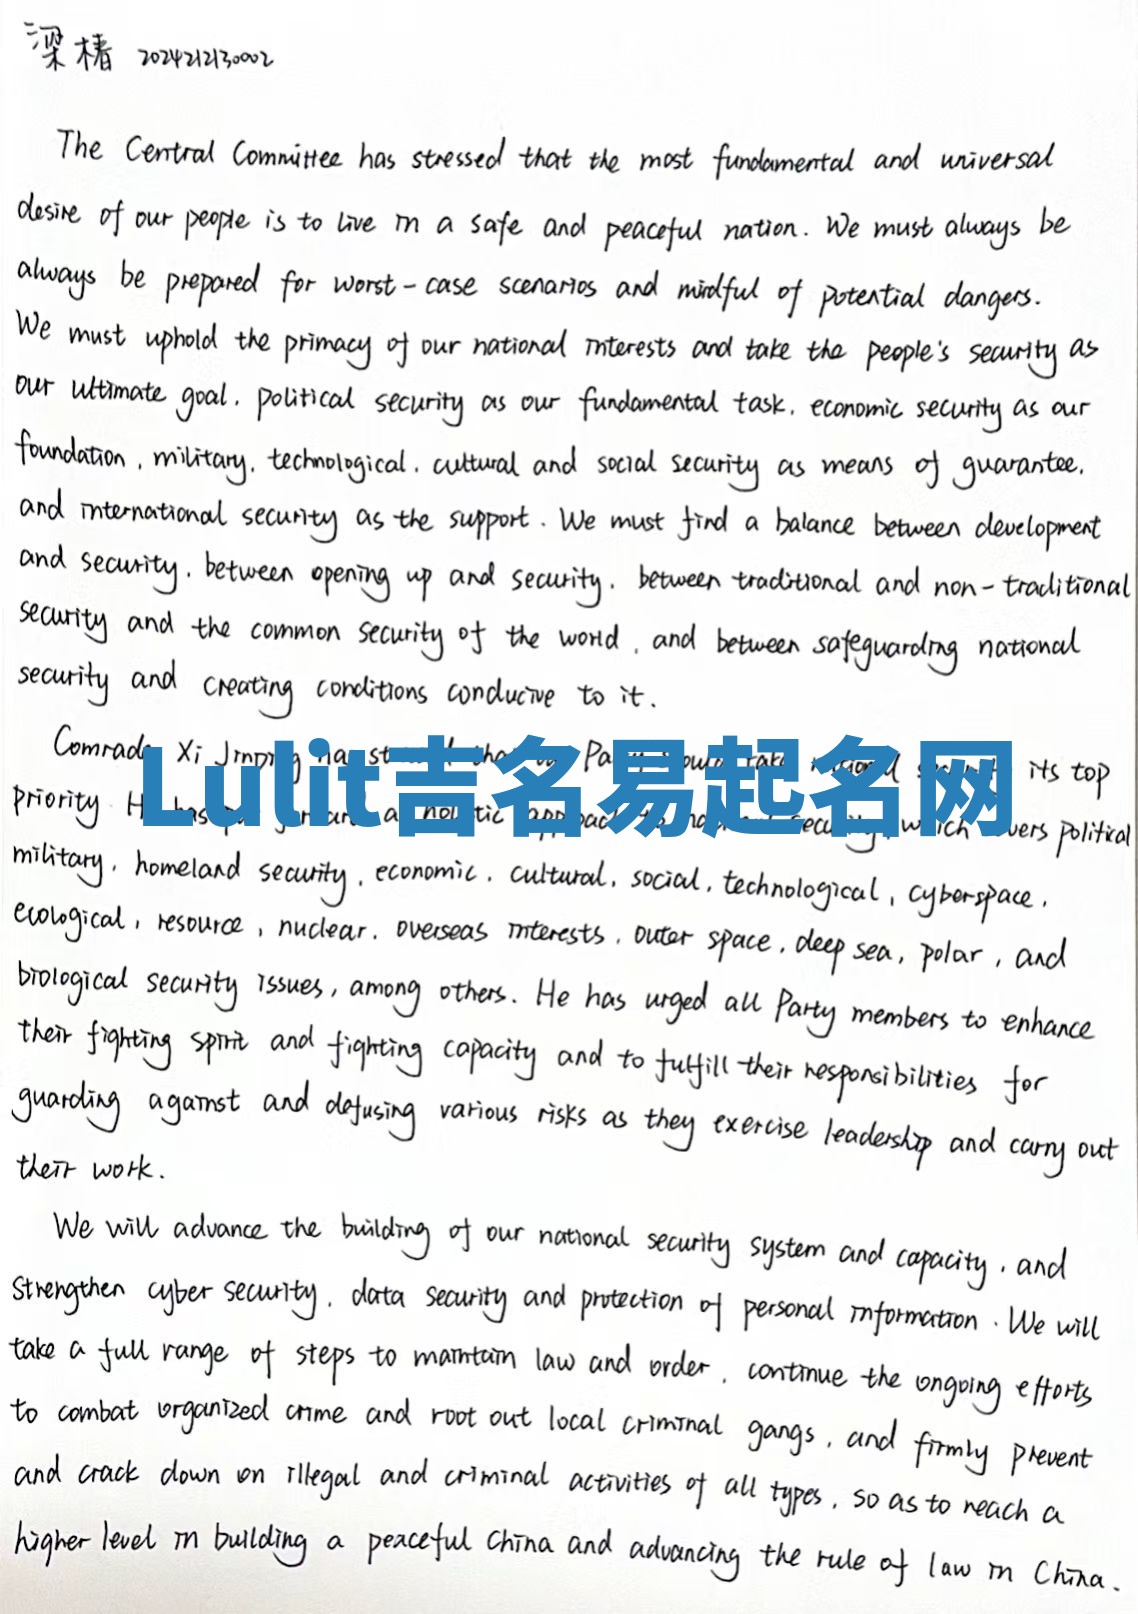 梁椿 2024212130002
The Central Committee has stressed that the most fundamental and universal
desire of our people is to live in a safe and peaceful nation. We must always be
always be prepared for worst-case scenarios and mindful of potential dangers.
We must uphold the primacy of our national interests and take the people's security as
our ultimate goal, political security as our fundamental task, economic security as our
foundation, military, technological, cultural and social security as means of guarantee,
and international security as the support. We must find a balance between development
and security, between opening up and security, between traditional and non-traditional
security and the common security of the world, and between safeguarding national
security and creating conditions conducive to it.
Comrade Xi Jinping its top
Lulit吉名易起名网
priority political
military, homeland security, economic, cultural, social, technological, cyberspace,
ecological, resource, nuclear, overseas interests, outer space, deep sea, polar, and
biological security issues, among others. He has urged all Party members to enhance
their fighting spirit and fighting capacity and to fulfill their responsibilities for
guarding against and defusing various risks as they exercise leadership and carry out
their work.
We will advance the building of our national security system and capacity, and
strengthen cyber security, data security and protection of personal information. We will
take a full range of steps to maintain law and order, continue the ongoing efforts
to combat organized crime and root out local criminal gangs, and firmly prevent
and crack down on illegal and criminal activities of all types, so as to reach a
higher level in building a peaceful China and advancing the rule of law in China.